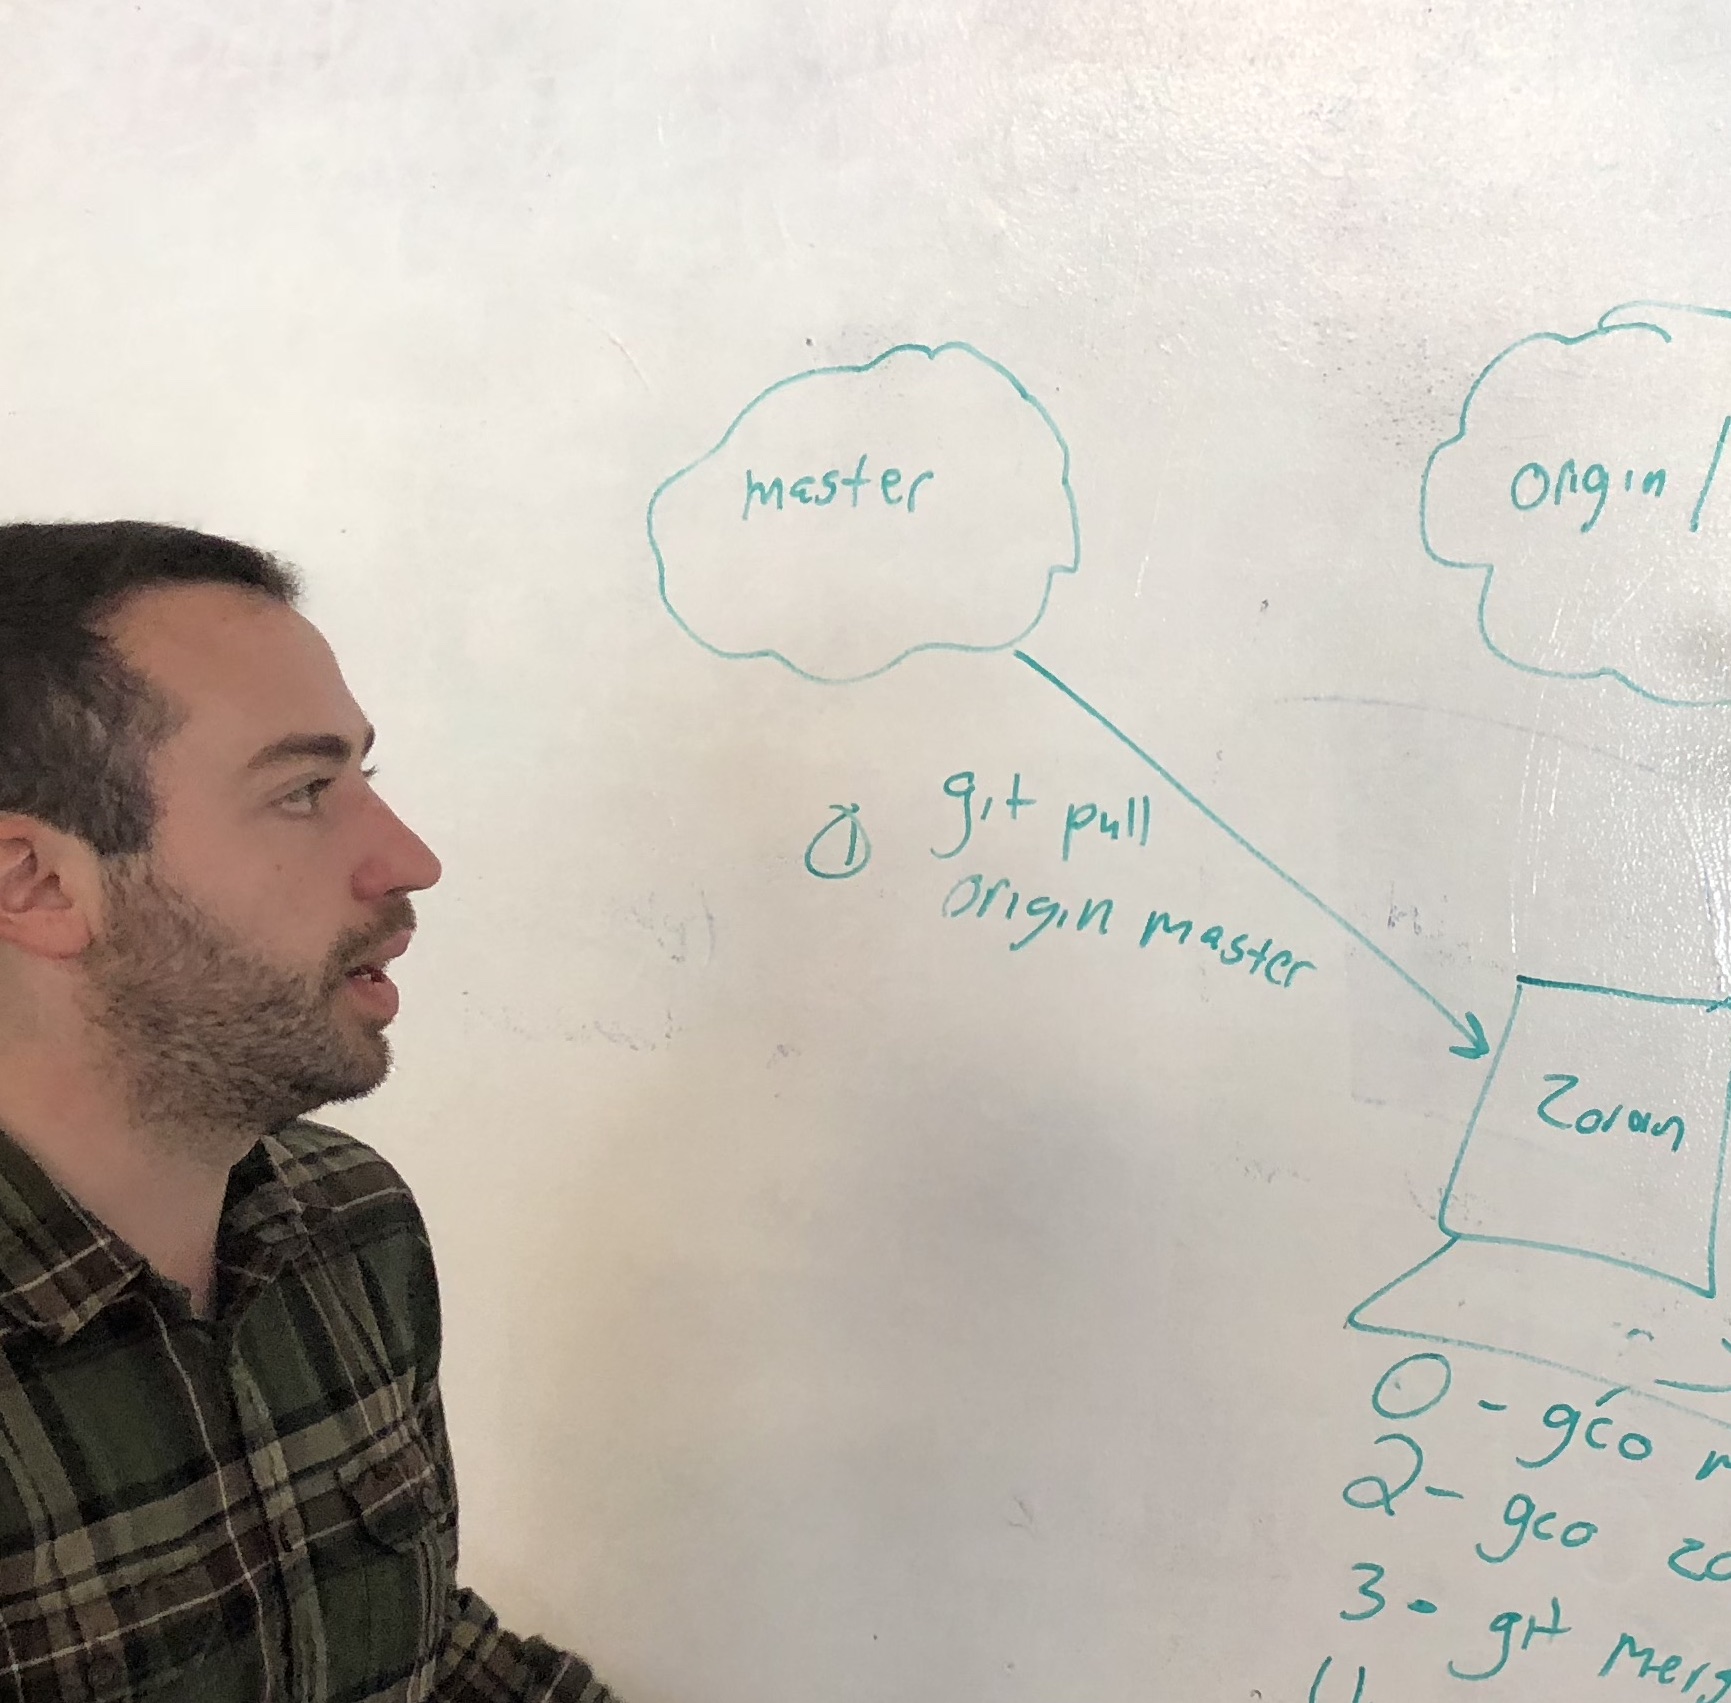 master
origin /
① git pull
origin master
Zoran
0 - gco
2 - gco
3 - git